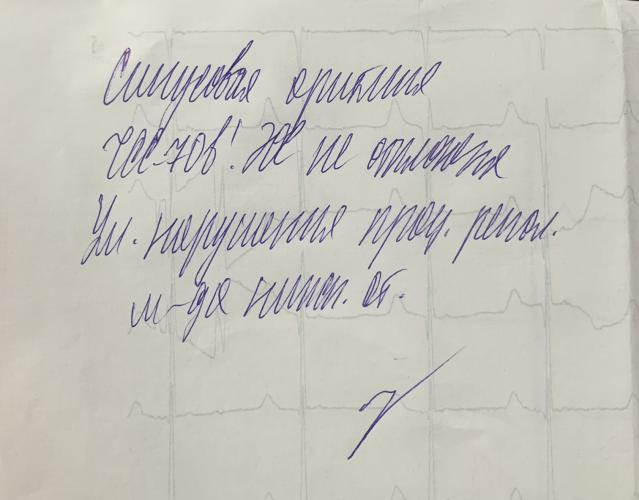 Синусовая аритмия
ЧСС-70в'. ЭОС не отклонена
Ум. нарушения проц. репол.
м-да нижн. ст.